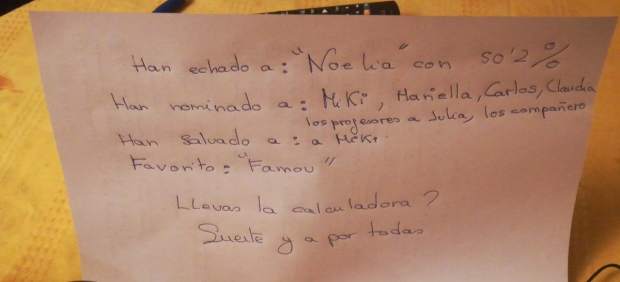 Han echado a: "Noelia" con 50'2%
Han nominado a: Miki, Mariella, Carlos, Claudia
los profesores a Julia, los compañero
Han Salvado a : a Miki
Favorito: "Famou"
LLevas la calculadora?
Suerte y a por todas